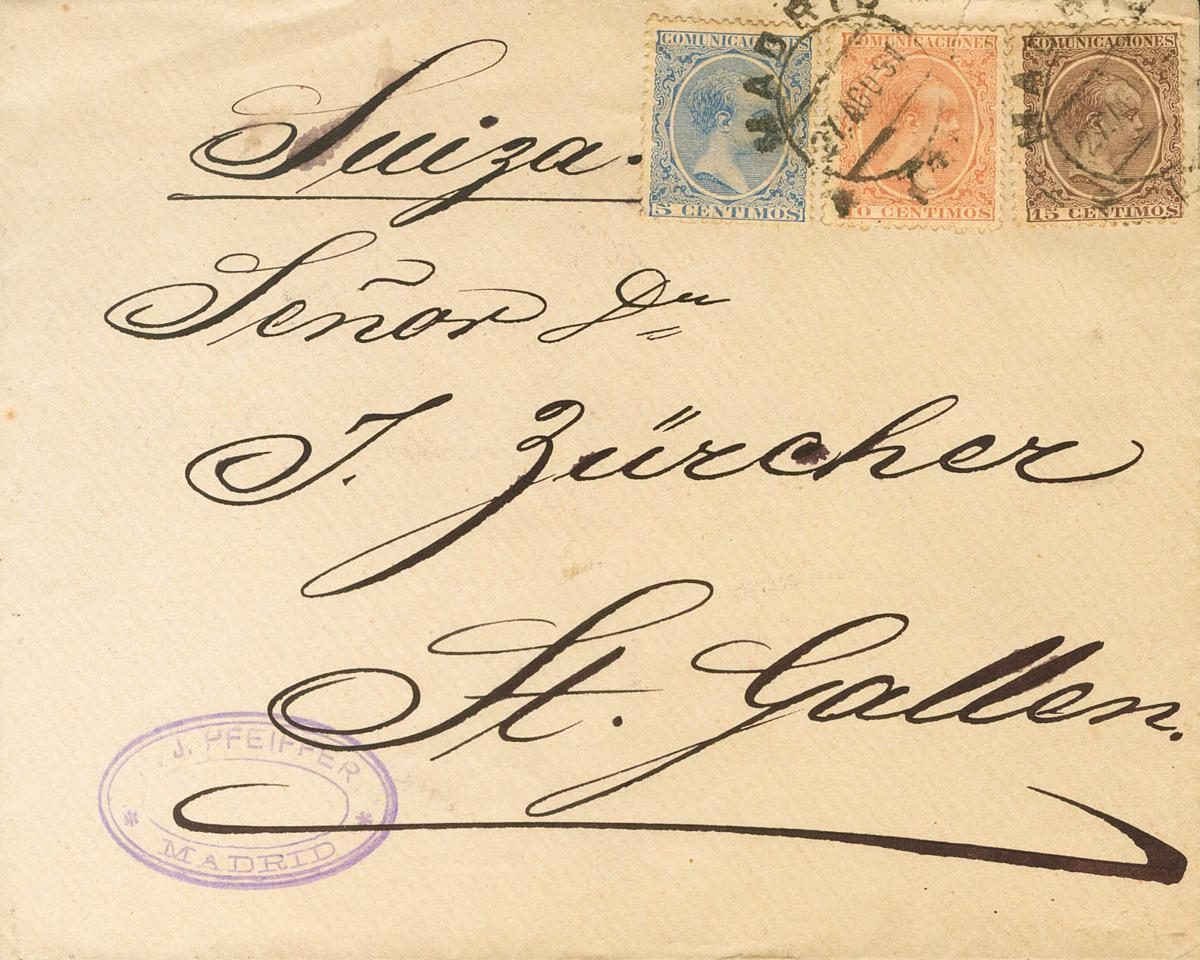 COMUNICACIONES COMUNICACIONES COMUNICACIONES
5 CENTIMOS 10 CENTIMOS 15 CENTIMOS
MADRID
27 AGO 91
MADRID
Suiza.
Señor Dn
J. Zürcher
St. Gallen.
J. PFEIFFER
* MADRID *